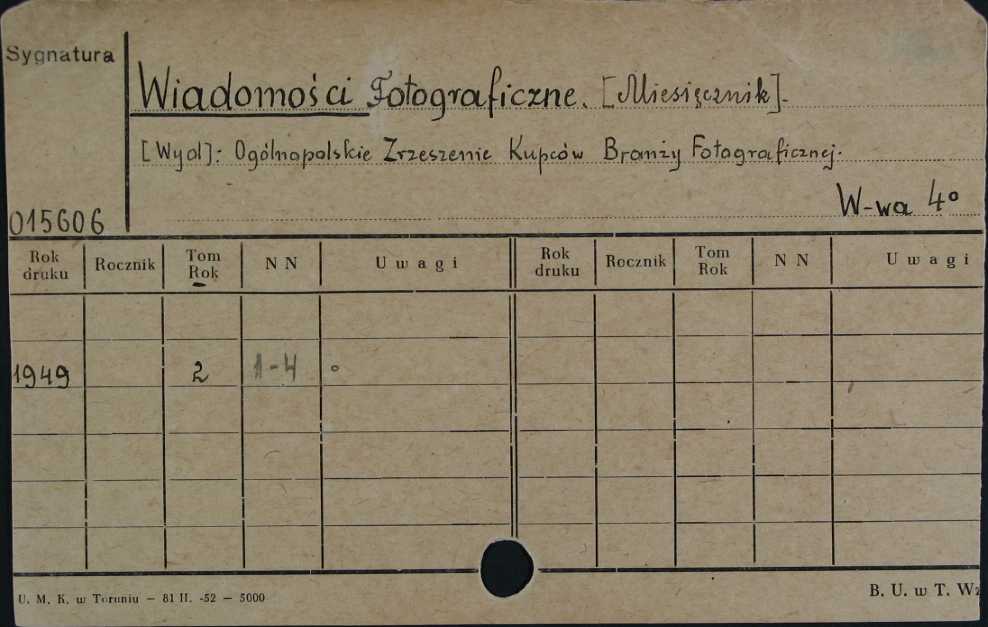 Sygnatura
Wiadomości Fotograficzne. [Miesięcznik].
[Wyd]: Ogólnopolskie Zrzeszenie Kupców Branży Fotograficznej.
W-wa 4º
015606
Rok druku Rocznik Tom Rok N N Uwagi Rok druku Rocznik Tom Rok N N Uwagi
1949 2 1-4 º
U. M. K. w Toruniu — 81 II. -52 — 5000
B. U. w T. Wz